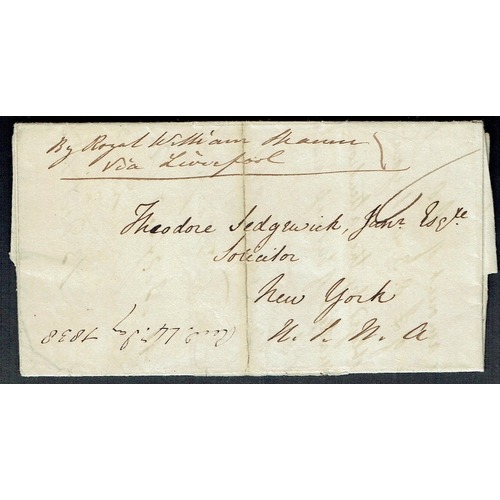 By Royal William Steamer
Via Liverpool
Theodore Sedgwick, Junr. Esqre.
Solicitor
New York
U. S. N. A
1838